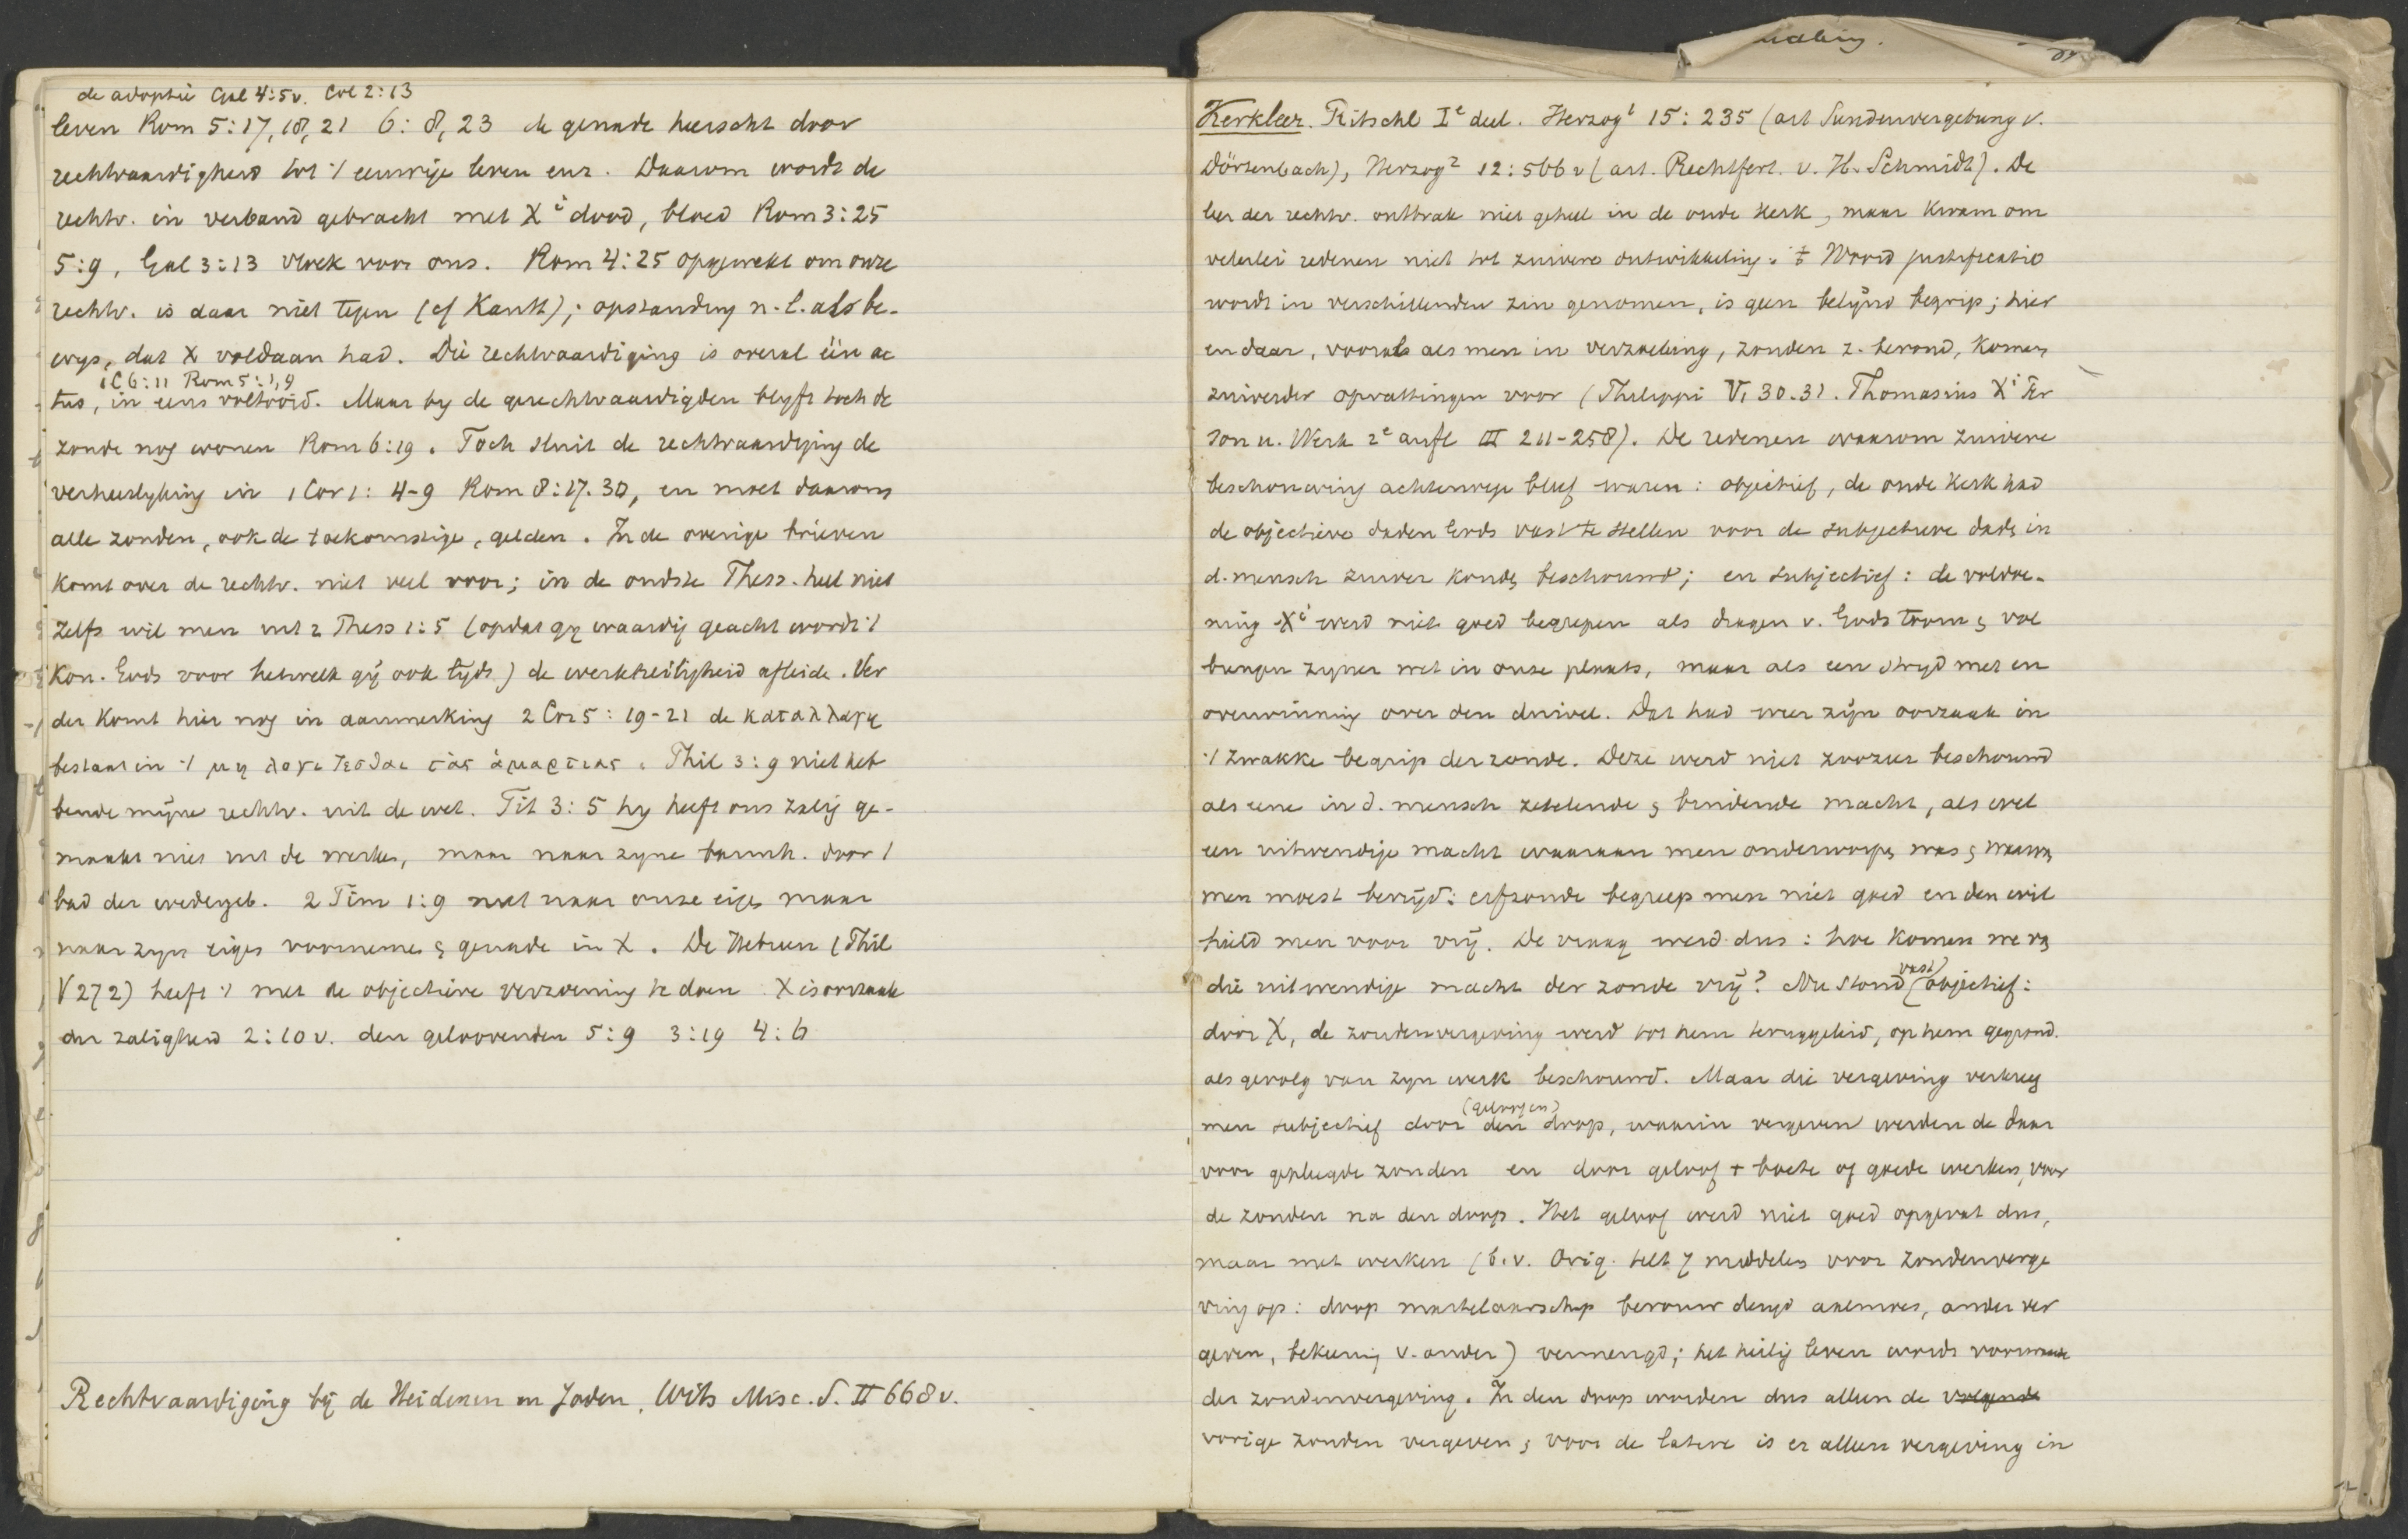 de adoptie Gal 4:5v. Col 2:13
leven Rom 5:17, 18, 21 6: 8, 23 de genade heerscht door
rechtvaardigheid tot 't eeuwige leven enz. Daarom wordt de
rechtv. in verband gebracht met Xi dood, bloed Rom 3:25
5:9, Gal 3:13 vloek voor ons. Rom 4:25 opgewekt om onze
rechtv. is daar niet tegen (cf Kant); opstanding n.l. als be-
wijs, dat X voldaan had. Die rechtvaardiging is overal één ac
1 C 6:11 Rom 5:1,9
tus, in eens voltooid. Maar by de gerechtvaardigden blyft toch de
zonde nog wonen Rom 6:19. Toch sluit de rechtvaardiging de
verheerlyking in 1 Cor 1: 4-9 Rom 8:17.30, en moet daarom
alle zonden, ook de toekomstige, gelden. In de overige brieven
komt over de rechtv. niet veel voor; in de oudste Thess. heel niet
Zelfs wil men uit 2 Thess 1:5 (opdat gy waardig geacht wordt 't
Kon. Gods voor hetwelk gij ook lijdt) de werkheiligheid afleide. Ver
der komt hier nog in aanmerking 2 Cor 5: 19-21 de καταλλαγη
bestaat in 't μη λογιζεσθαι τὰς ἁμαρτιας. Phil 3:9 niet heb
bende mijne rechtv. uit de wet. Tit 3:5 hy heeft ons zalig ge-
maakt niet uit de werken, maar naar zyne barmh. door 't
bad der wedergeb. 2 Tim 1:9 niet naar onze eigen maar
naar zyn eigen voornemen & genade in X. De Hebreen (Phil
V 272) heeft 't met de objectieve verzoening te doen X is oorzaak
der zaligheid 2:10v. den geloovenden 5:9 3:19 4:6
Rechtvaardiging bij de Heidenen en Joden, Wits Misc. S. II 668v.
Kerkleer. Ritschl Ie deel. Herzog1 15:235 (art Sundenvergebung v.
Dörtenbach), Herzog2 12:566v (art. Rechtfert. v. H. Schmidt). De
leer der rechtv. ontbrak niet geheel in de oude Kerk, maar kwam om
velerlei redenen niet tot zuivere ontwikkeling. 't Woord justificatio
wordt in verschillenden zin genomen, is geen belijnd begrip; hier
en daar, vooral als men in verzoeking, zonden z. bevond, komen
zuiverder opvattingen voor (Philippi V, 30.31. Thomasius Xi Per
son u. Werk 2e aufl III 211-258). De redenen waarom zuivere
beschouwing achterwege bleef waren: objectief, de oude kerk had
de objectieve daden Gods vast te stellen voor de subjectieve daden in
d. mensch zuiver konden beschouwd; en subjectief: de voldoe-
ning Xi werd niet goed begrepen als dragen v. Gods toorn & vol
brengen zyner wet in onze plaats, maar als een stryd met en
overwinning over den duivel. Dat had weer zijn oorzaak in
't zwakke begrip der zonde. Deze werd niet zoozeer beschouwd
als eene in d. mensch zetelende & bindende macht, als wel
een uitwendige macht waaraan men onderworpen was & waarvan
men moest bevrijd: erfzonde begreep men niet goed en den wil
hield men voor vrij. De vraag werd dus: hoe komen we van
die uitwendige macht der zonde vrij? Nu stond (vast) objectief:
door X, de zondenvergeving werd tot hem teruggeleid, op hem gegrond.
als gevolg van zyn werk beschouwd. Maar die vergeving verkreeg
men subjectief door (geloof en) den doop, waarin vergeven werden de daar
voor gepleegde zonden en door geloof + boete of goede werken, voor
de zonden na den doop. Het geloof werd niet goed opgevat dus,
maar met werken (b.v. Orig. telt 7 middelen voor zondenverge
ving op: doop martelaarschap berouw deugd aalmoes, ander ver
geven, bekeering v. ander) vermengd; het heilig leven wordt voorwaarde
der zondenvergeving. In den doop worden dus alleen de volgende
vorige zonden vergeven & voor de latere is er alleen vergeving in